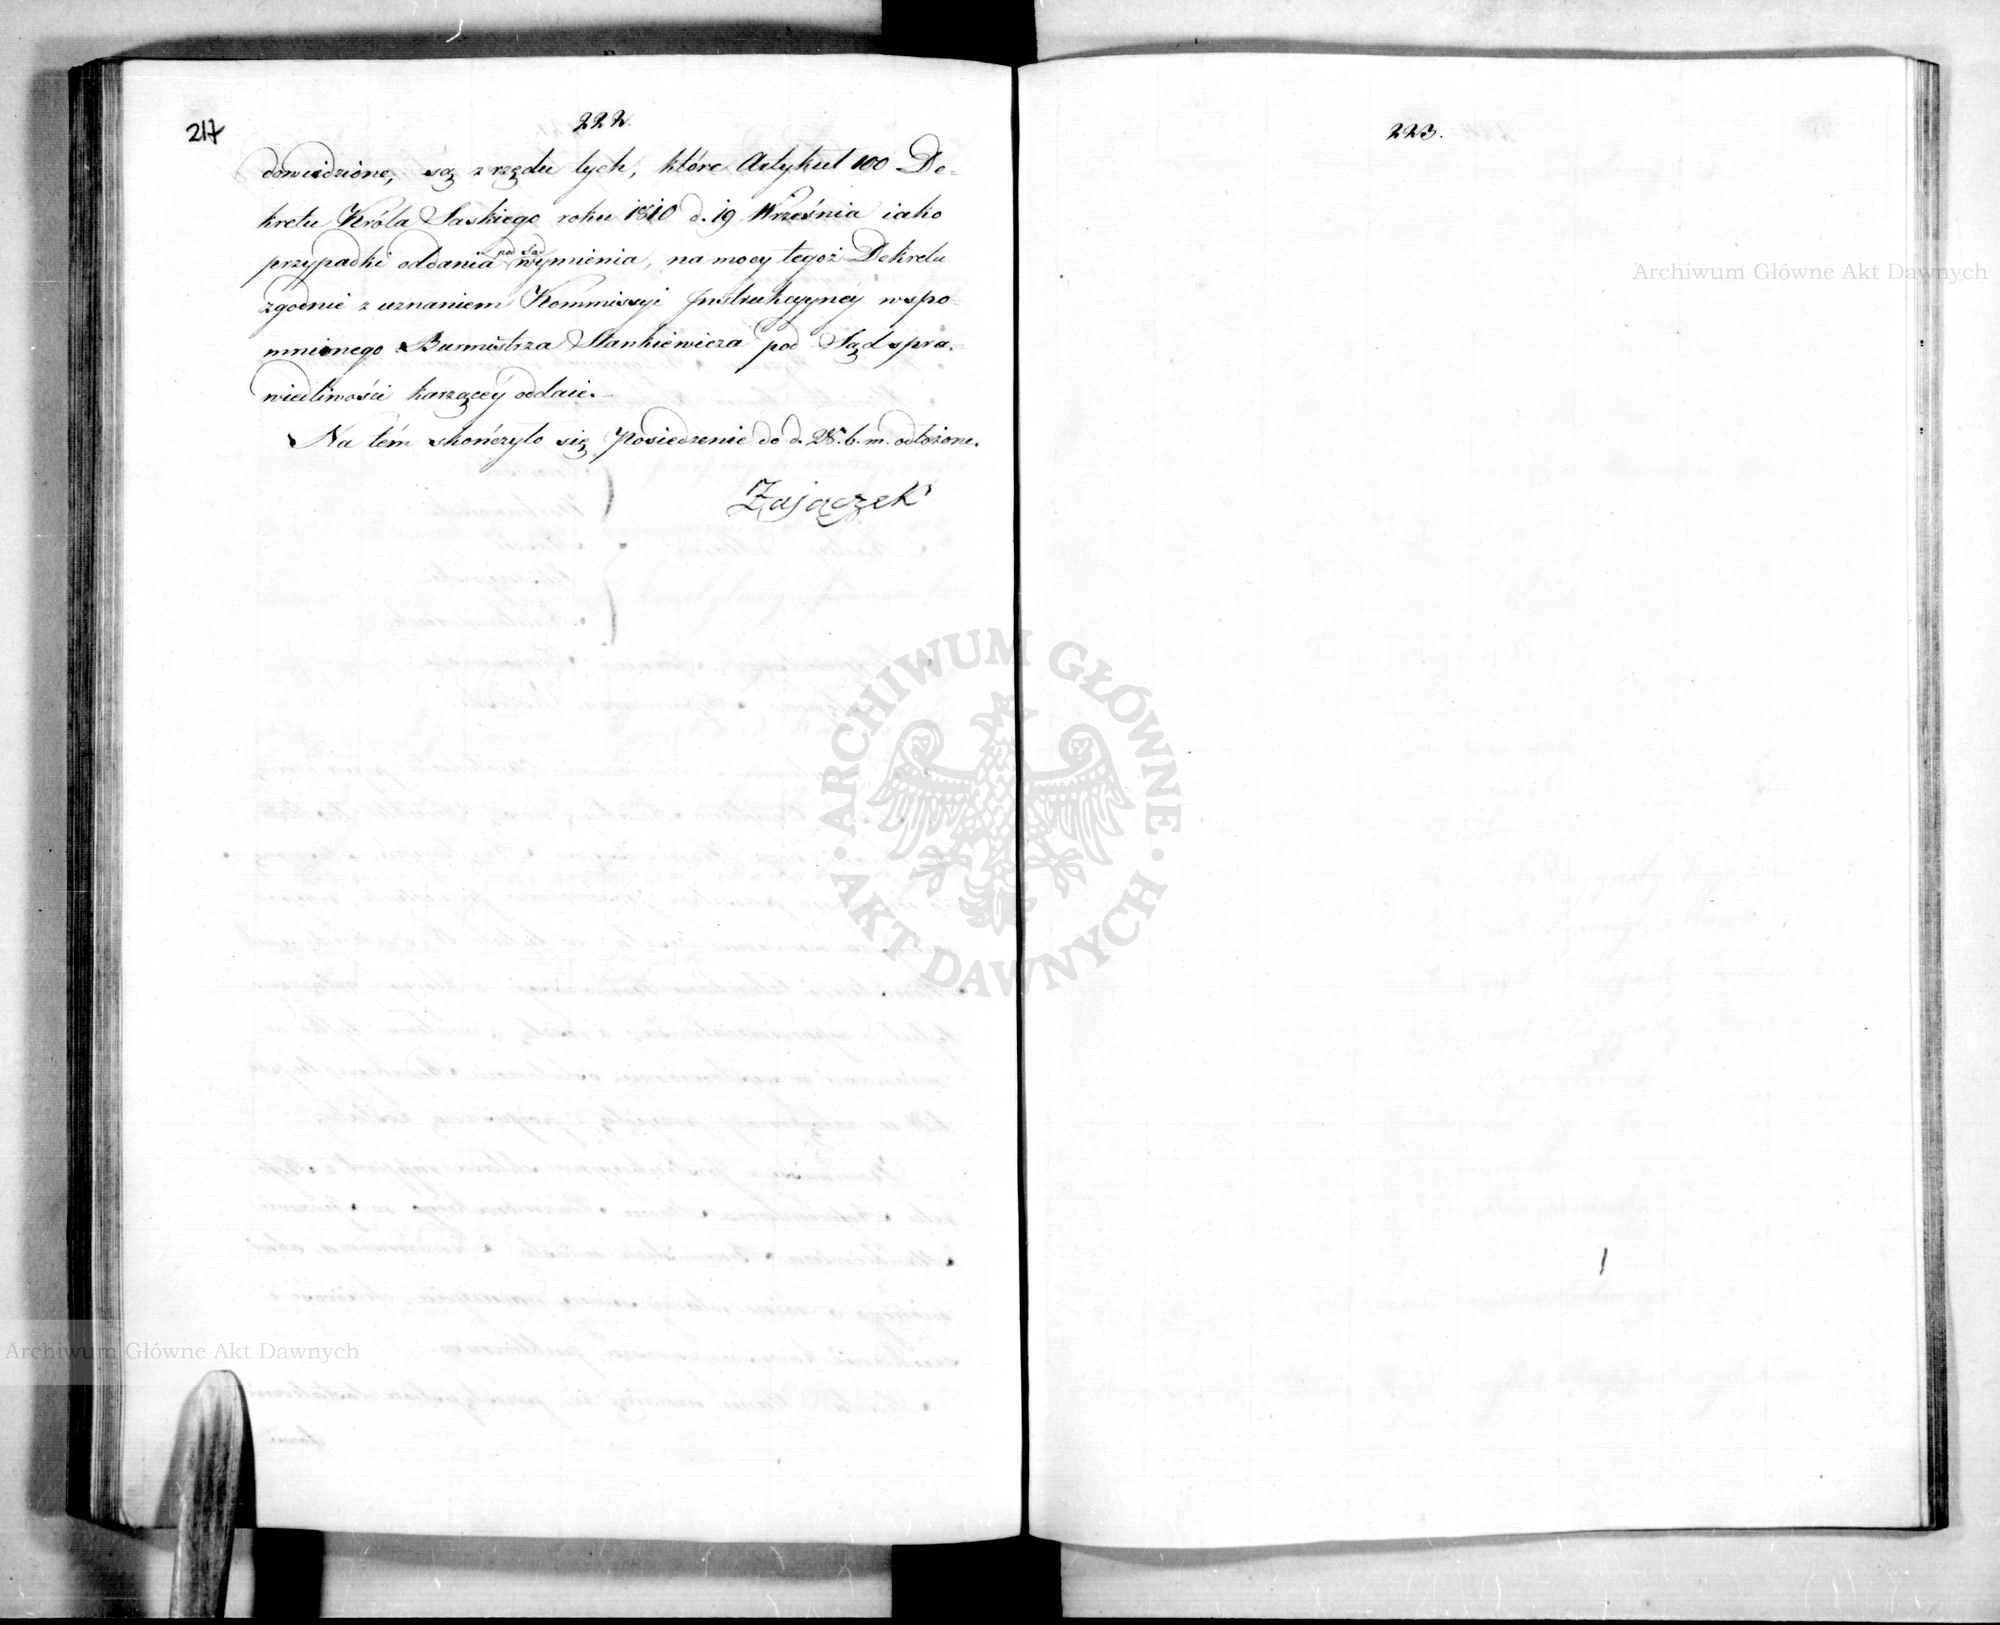 217
222.
dowiedzione, są z rzędu tych, które Artykuł 100 De-
kretu Króla Saskiego roku 1810 d. 19 Września iako
przypadki oddania pod Sąd wymienia, na mocy tegoż Dekretu
zgodnie z uznaniem Kommissyi Jnstrukcyyney wspo-
mnionego Burmistrza Stankiewicza pod Sąd spra-
wiedliwości karzącey oddaie.
Na tém skończyło się Posiedzenie do d. 28. b. m. odłożone.
Zajączek
223.
Archiwum Główne Akt Dawnych
ARCHIWUM GŁÓWNE AKT DAWNYCH
Archiwum Główne Akt Dawnych